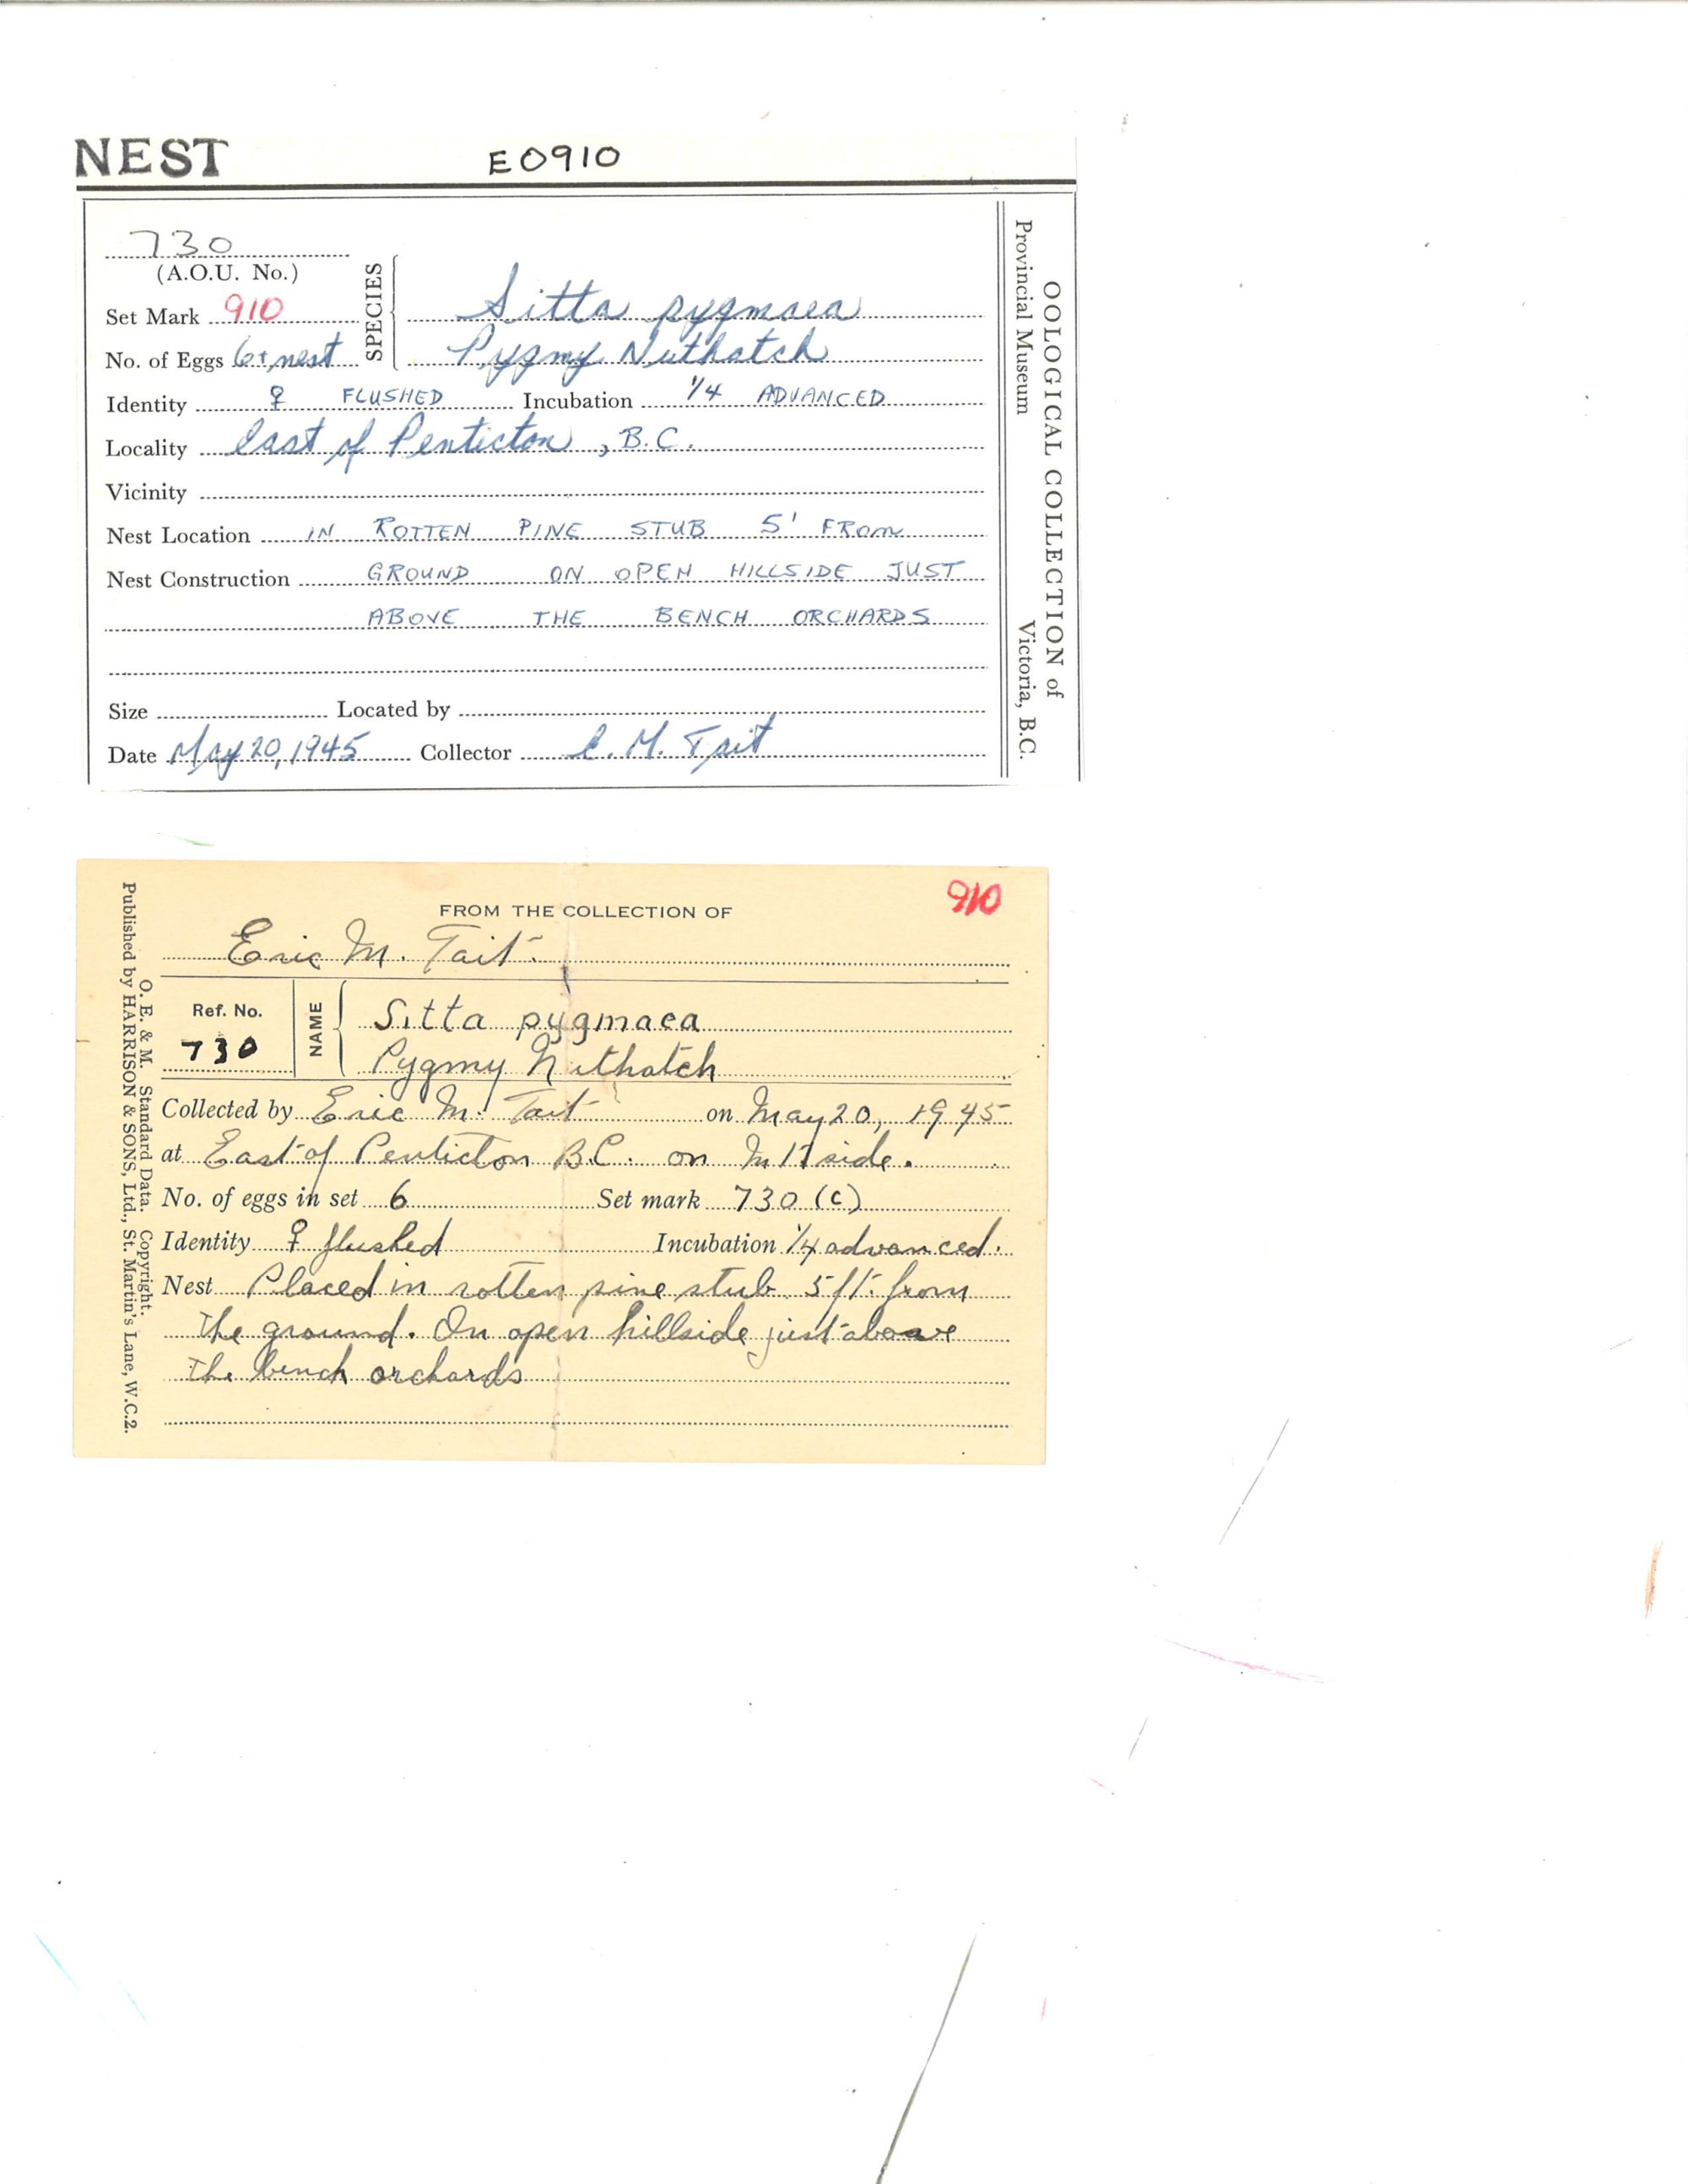 NEST E0910
730
(A.O.U. No.)
SPECIES
Set Mark 910 Sitta pygmaea
No. of Eggs 6+nest Pygmy Nuthatch
Identity ♀ FLUSHED Incubation 1/4 ADVANCED
Locality East of Penticton, B.C.
Vicinity
Nest Location IN ROTTEN PINE STUB 5' FROM
Nest Construction GROUND ON OPEN HILLSIDE JUST
ABOVE THE BENCH ORCHARDS
Size Located by
Date May 20, 1945 Collector E. M. Tait
OOLOGICAL COLLECTION of
Provincial Museum Victoria, B.C.
910
FROM THE COLLECTION OF
Eric M. Tait.
Ref. No.
730
NAME
Sitta pygmaea
Pygmy Nuthatch
Collected by Eric M. Tait on May 20, 1945
at East of Penticton B.C. on side.
No. of eggs in set 6 Set mark 730 (c)
Identity ♀ flushed Incubation 1/4 advanced.
Nest Placed in rotten pine stub 5 ft. from
the ground. On open hillside just above
the bench orchards
O. E. & M. Standard Data. Copyright.
Published by HARRISON & SONS, Ltd., St. Martin's Lane, W.C.2.